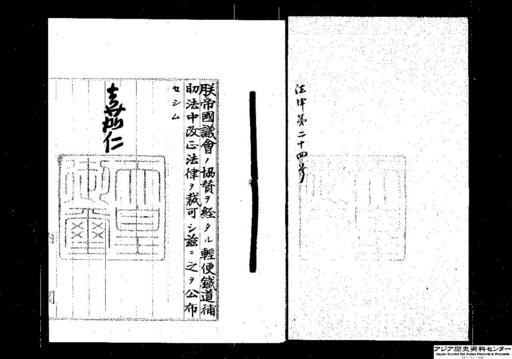 法律第二十四号
朕帝國議會ノ協賛ヲ経タル輕便鐵道補
助法中改正法律ヲ裁可シ茲ニ之ヲ公布
セシム
嘉仁
天皇
御璽
アジア歴史資料センター
Japan Center for Asian Historical Records